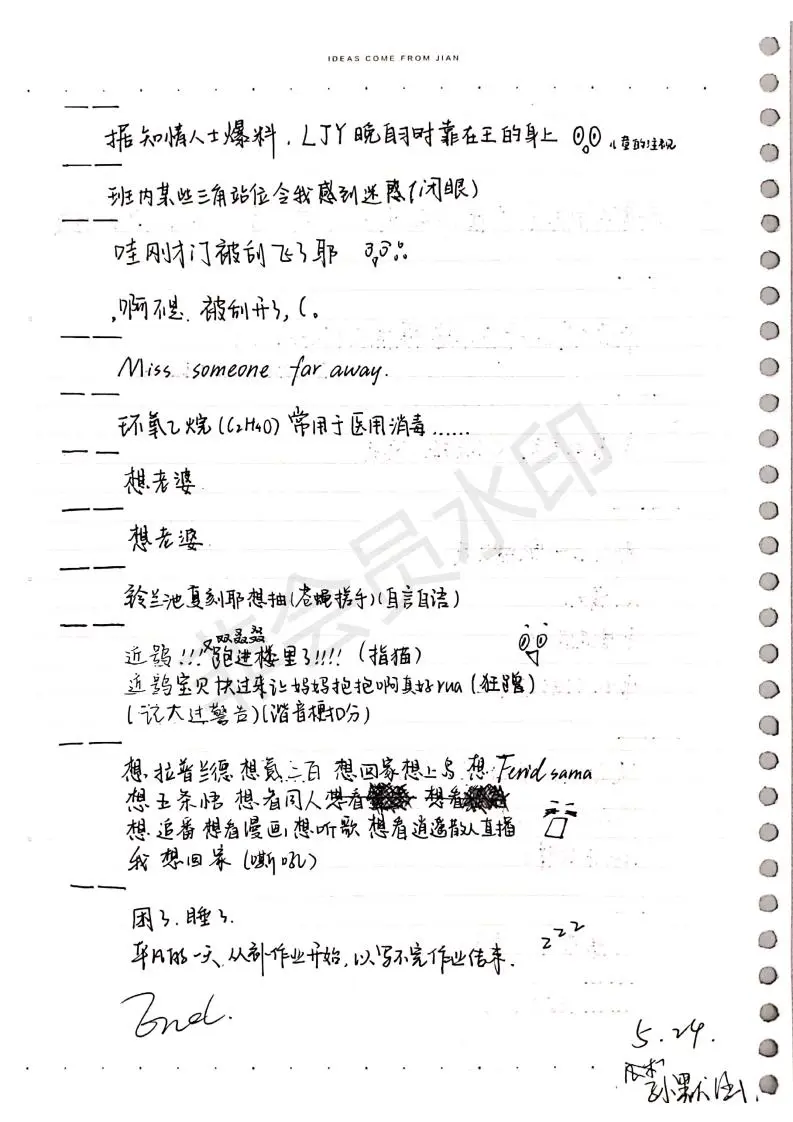 IDEAS COME FROM JIAN
据知情人士爆料，LJY晚自习时靠在王的身上 儿童的注视
班内某些三角站位令我感到迷惑(闭眼)
哇刚才门被刮飞了耶
啊不是 被刮开了,(。
Miss someone far away.
环氧乙烷(C2H4O)常用于医用消毒……
想老婆
想老婆
铃兰池夏刻耶想抽(苍蝇搓手)(自言自语)
又双叒叕
近鹞!!! 跑进楼里了!!!! (指猫)
近鹞宝贝快过来让妈妈抱抱啊真好rua(狂蹭)
(记大过警告)(谐音梗扣分)
想拉普兰德 想氦二百 想回家想上号 想Ferid sama
想五条悟 想看同人想看 想看
想追番想看漫画想听歌 想看逍遥散人直播
我想回家(嘶吼)
困了.睡了.
zzz
平凡的一天,从补作业开始,以写不完作业结束.
End.
5.24.
会员水印